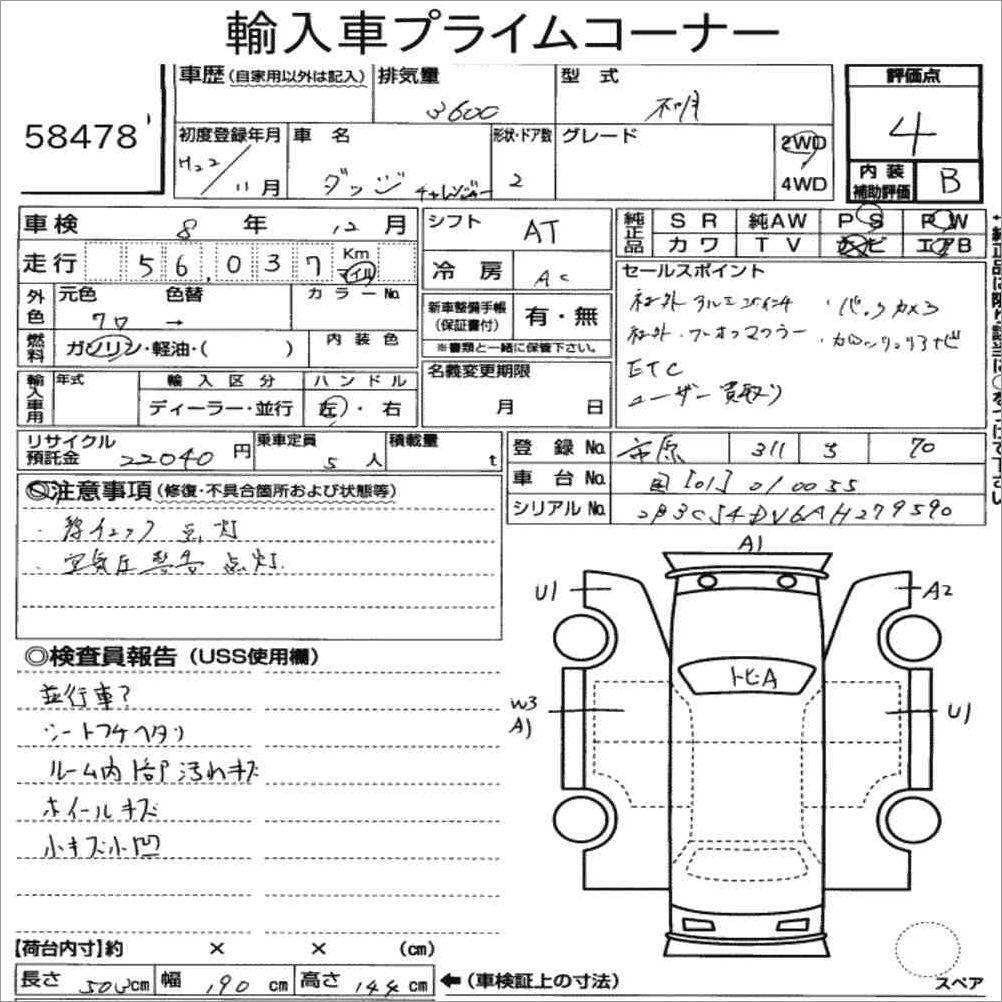 輸入車プライムコーナー
58478
車歴(自家用以外は記入) 排気量 3600 型式 不明 評価点 4
初度登録年月 H22/11月 車名 ダッジ チャレンジャー 形状・ドア数 2 グレード 2WD 4WD 内装補助評価 B
車検 8年 12月 シフト AT 純正品 SR 純AW PS PW
走行 56,037 Km マイル 冷房 AC カワ TV ナビ エアB
外色 元色 クロ 色替 → カラーNo.
新車整備手帳(保証書付) 有・無
※書類と一緒に保管下さい。
燃料 ガソリン・軽油・( ) 内装色
セールスポイント
社外アルミ 20インチ ・バックカメラ
社外・フーオンマフラー ・カロッツェリアナビ
ETC
ユーザー買取り
輸入車用 年式 輸入区分 ディーラー・並行 ハンドル 左・右
名義変更期限 月 日
リサイクル預託金 22040円 乗車定員 5人 積載量 t
登録No. 市原 311 70
車台No. 国[01]010055
シリアルNo. 2B3CJ4DV6AH279590
◎注意事項(修復・不具合箇所および状態等)
・空気圧警告 点灯.
◎検査員報告(USS使用欄)
並行車?
シートコゲヘタリ
ルーム内1部汚れキズ
ホイールキズ
小キズ小凹
A1
U1
A2
トビA
W3
A1
U1
【荷台内寸】約 × × (cm)
長さ 503cm 幅 190cm 高さ 144cm ←(車検証上の寸法)
スペア